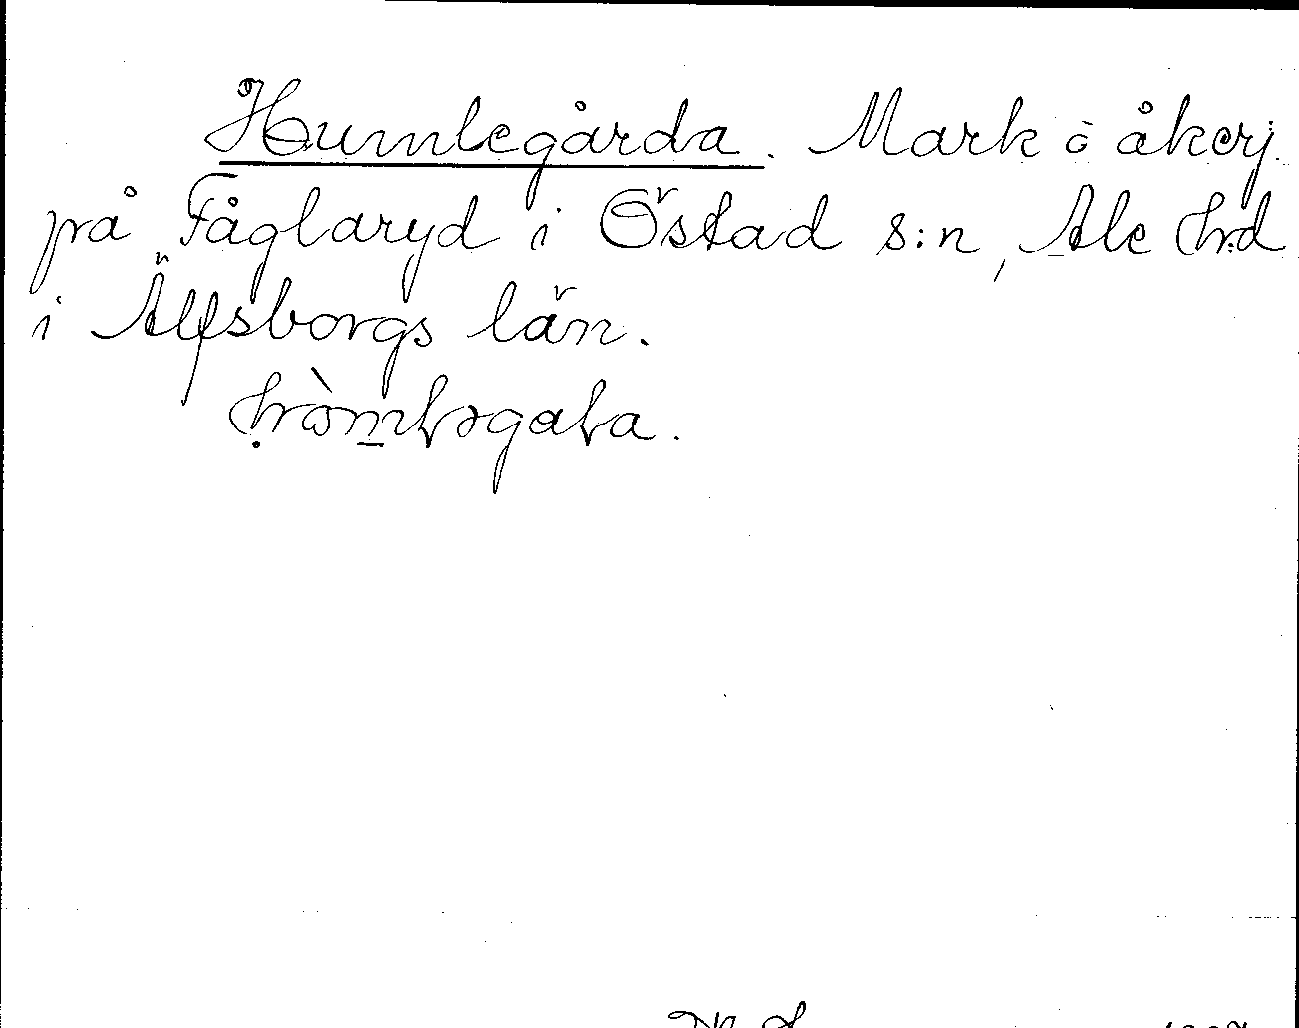 Humlegårda. Mark å åkerj.
på Fåglaryd i Östad s:n, Ale hrd
i Älfsborgs län.